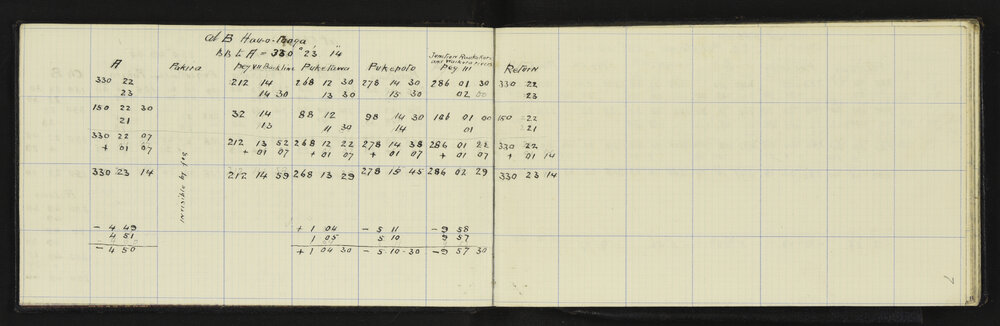 at B Hau-o-Tonga
BB to A = 330° 23' 14"
A Pukina Peg VII Backline Puketawa Pukepoto Junction Peg III Return
330 22 212 14 268 12 30 278 14 30 286 01 30 330 22
23 14 30 13 30 15 30 02 00 23
150 22 30 32 14 88 12 98 14 30 106 01 00 150 22
21 13 11 30 14 01 21
330 22 07 212 13 52 268 12 22 278 14 38 286 01 22 330 22
+ 01 07 + 01 07 + 01 07 + 01 07 + 01 07 + 01 14
330 23 14 212 14 59 268 13 29 278 15 45 286 02 29 330 23 14
invisible by fog
- 4 49 + 1 04 - 5 11 - 9 58
4 51 1 05 5 10 9 57
- 4 50 + 1 04 30 - 5-10-30 - 9 57 30
7